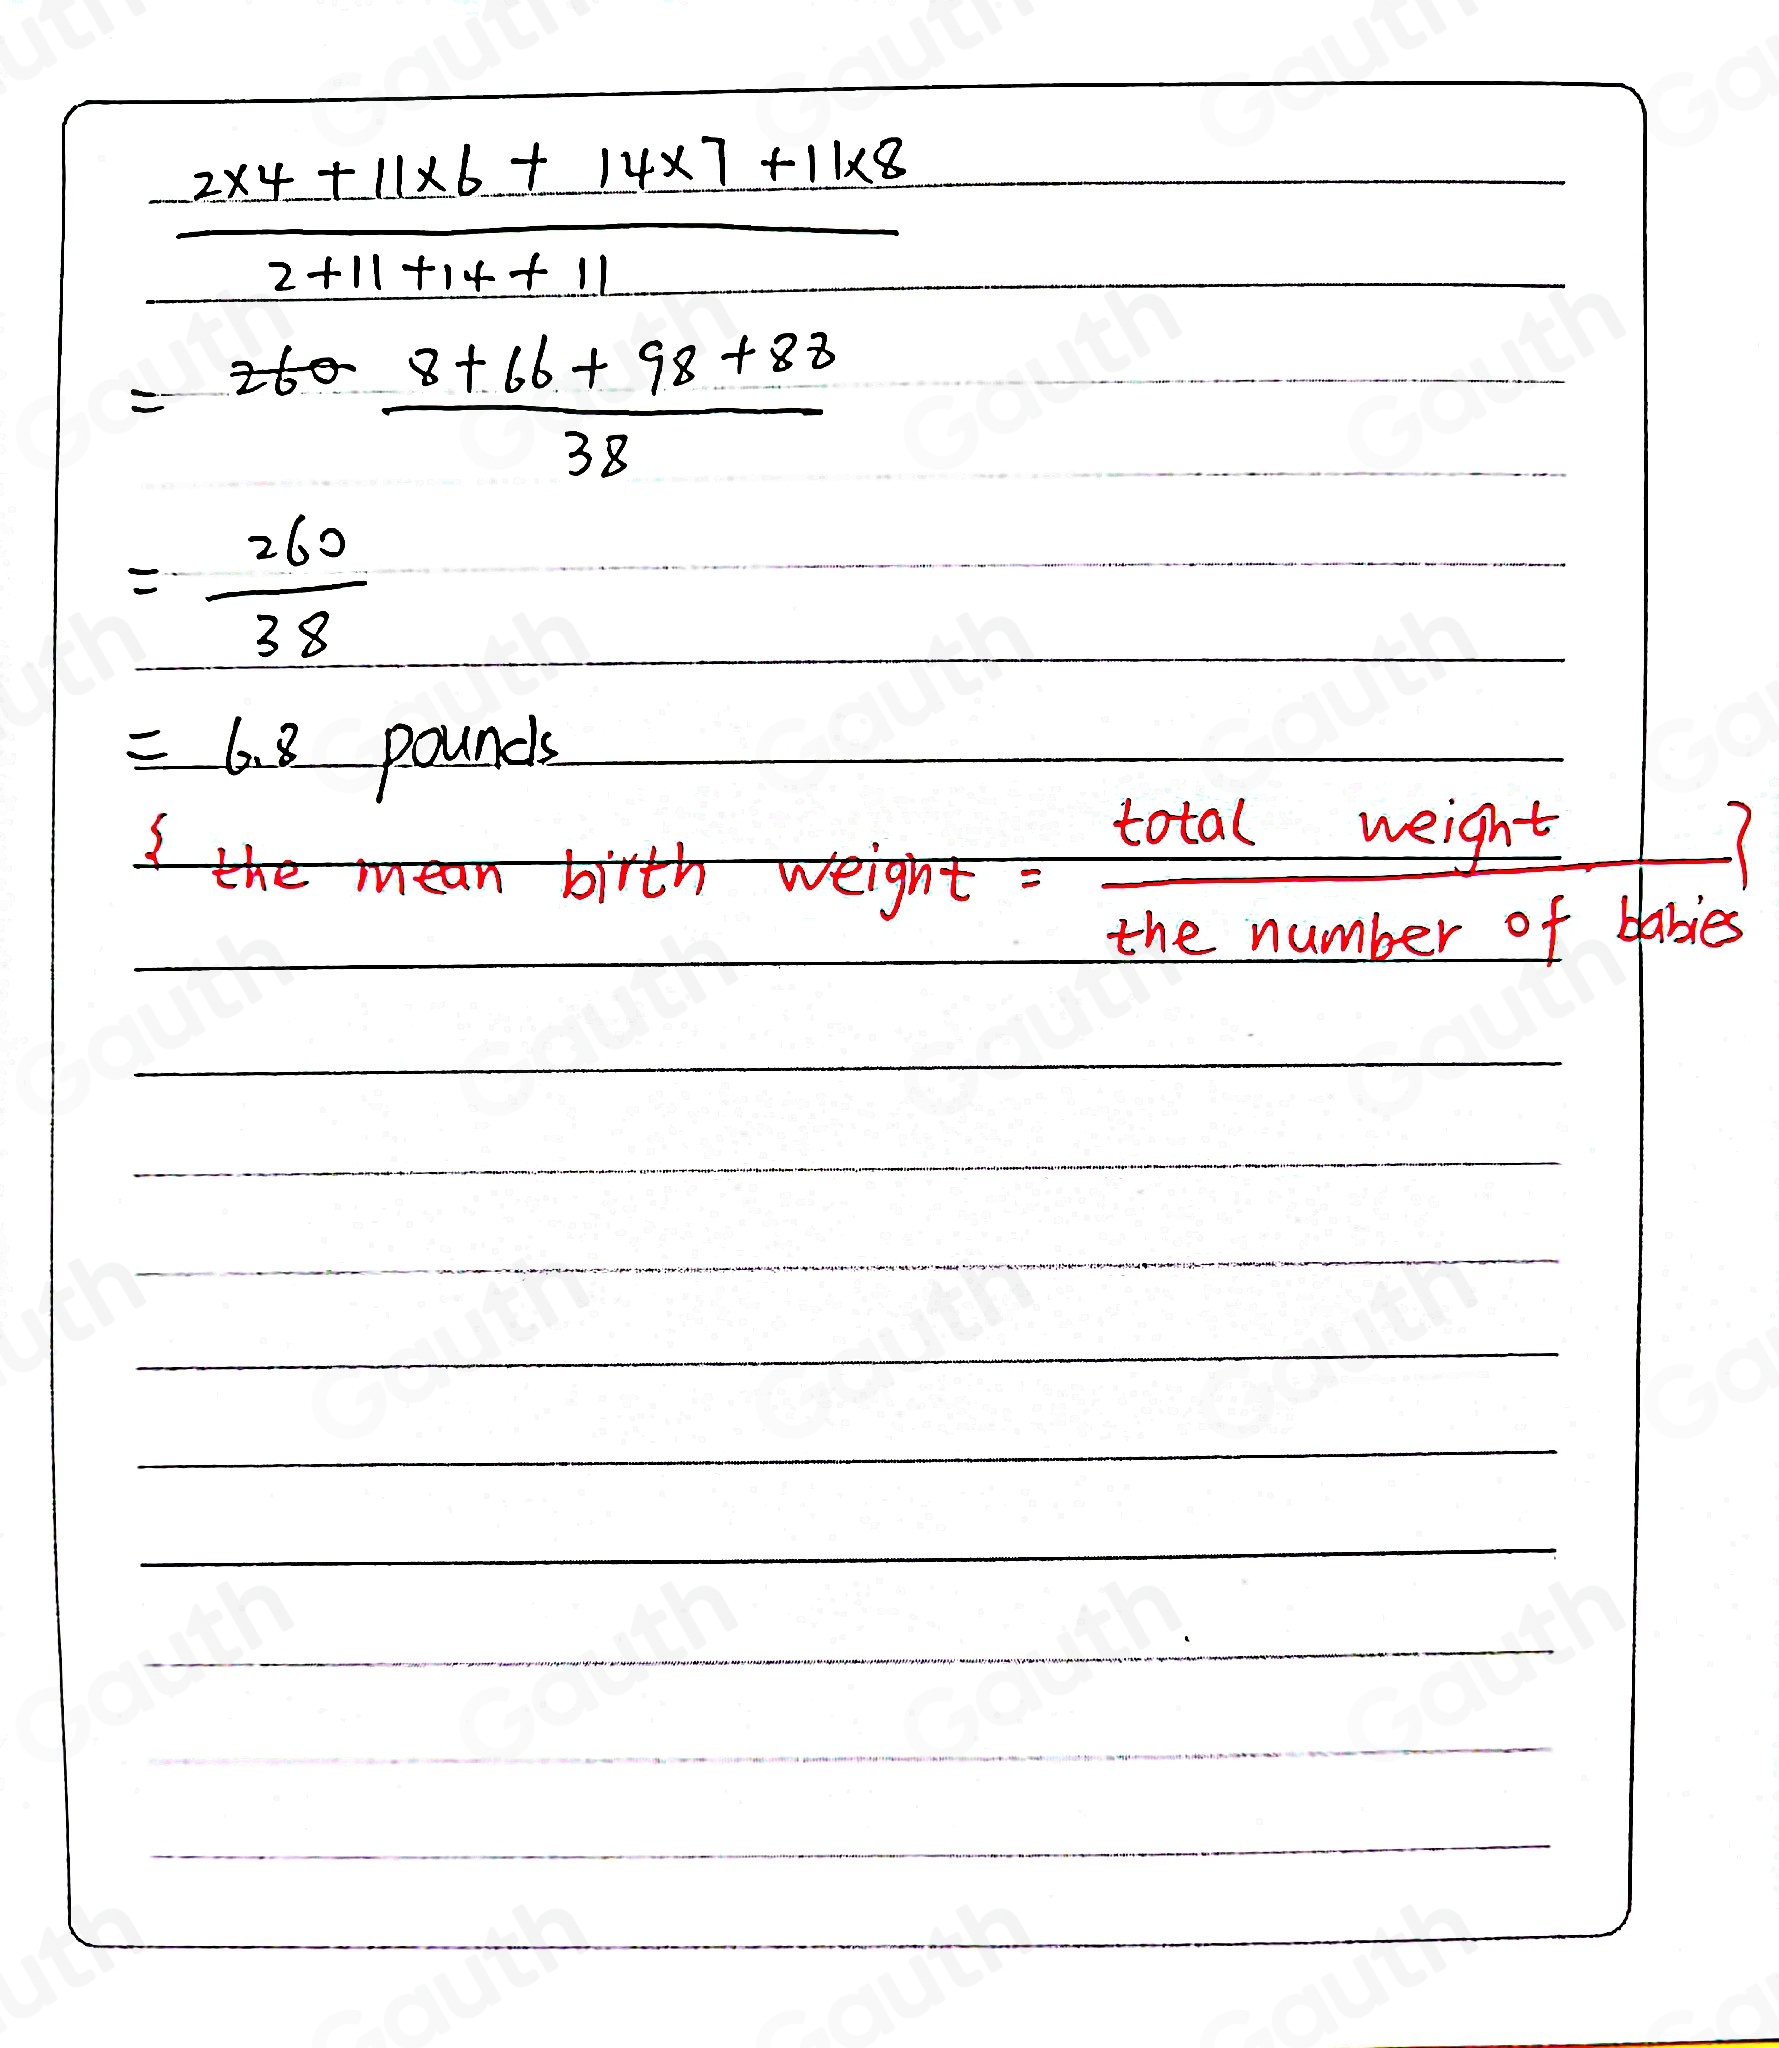 2×4 + 11×6 + 14×7 + 11×8
2+11+14+11
= 260 8+66+98+88
38
= 260
38
= 6.8 pounds
{ the mean birth weight = total weight }
the number of babies